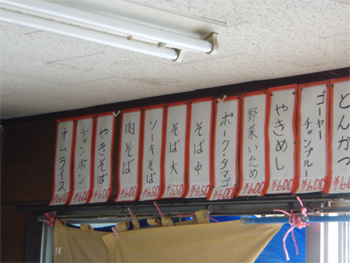 とんかつ
ゴーヤーチャンプルー
¥600
やきめし
¥600
野菜いため
¥600
ポーク・タマゴ
¥600
そば中
¥450
そば大
¥550
ソーキそば
¥650
肉そば
¥600
やきそば
¥600
チャンポン
¥600
オムライス
¥600